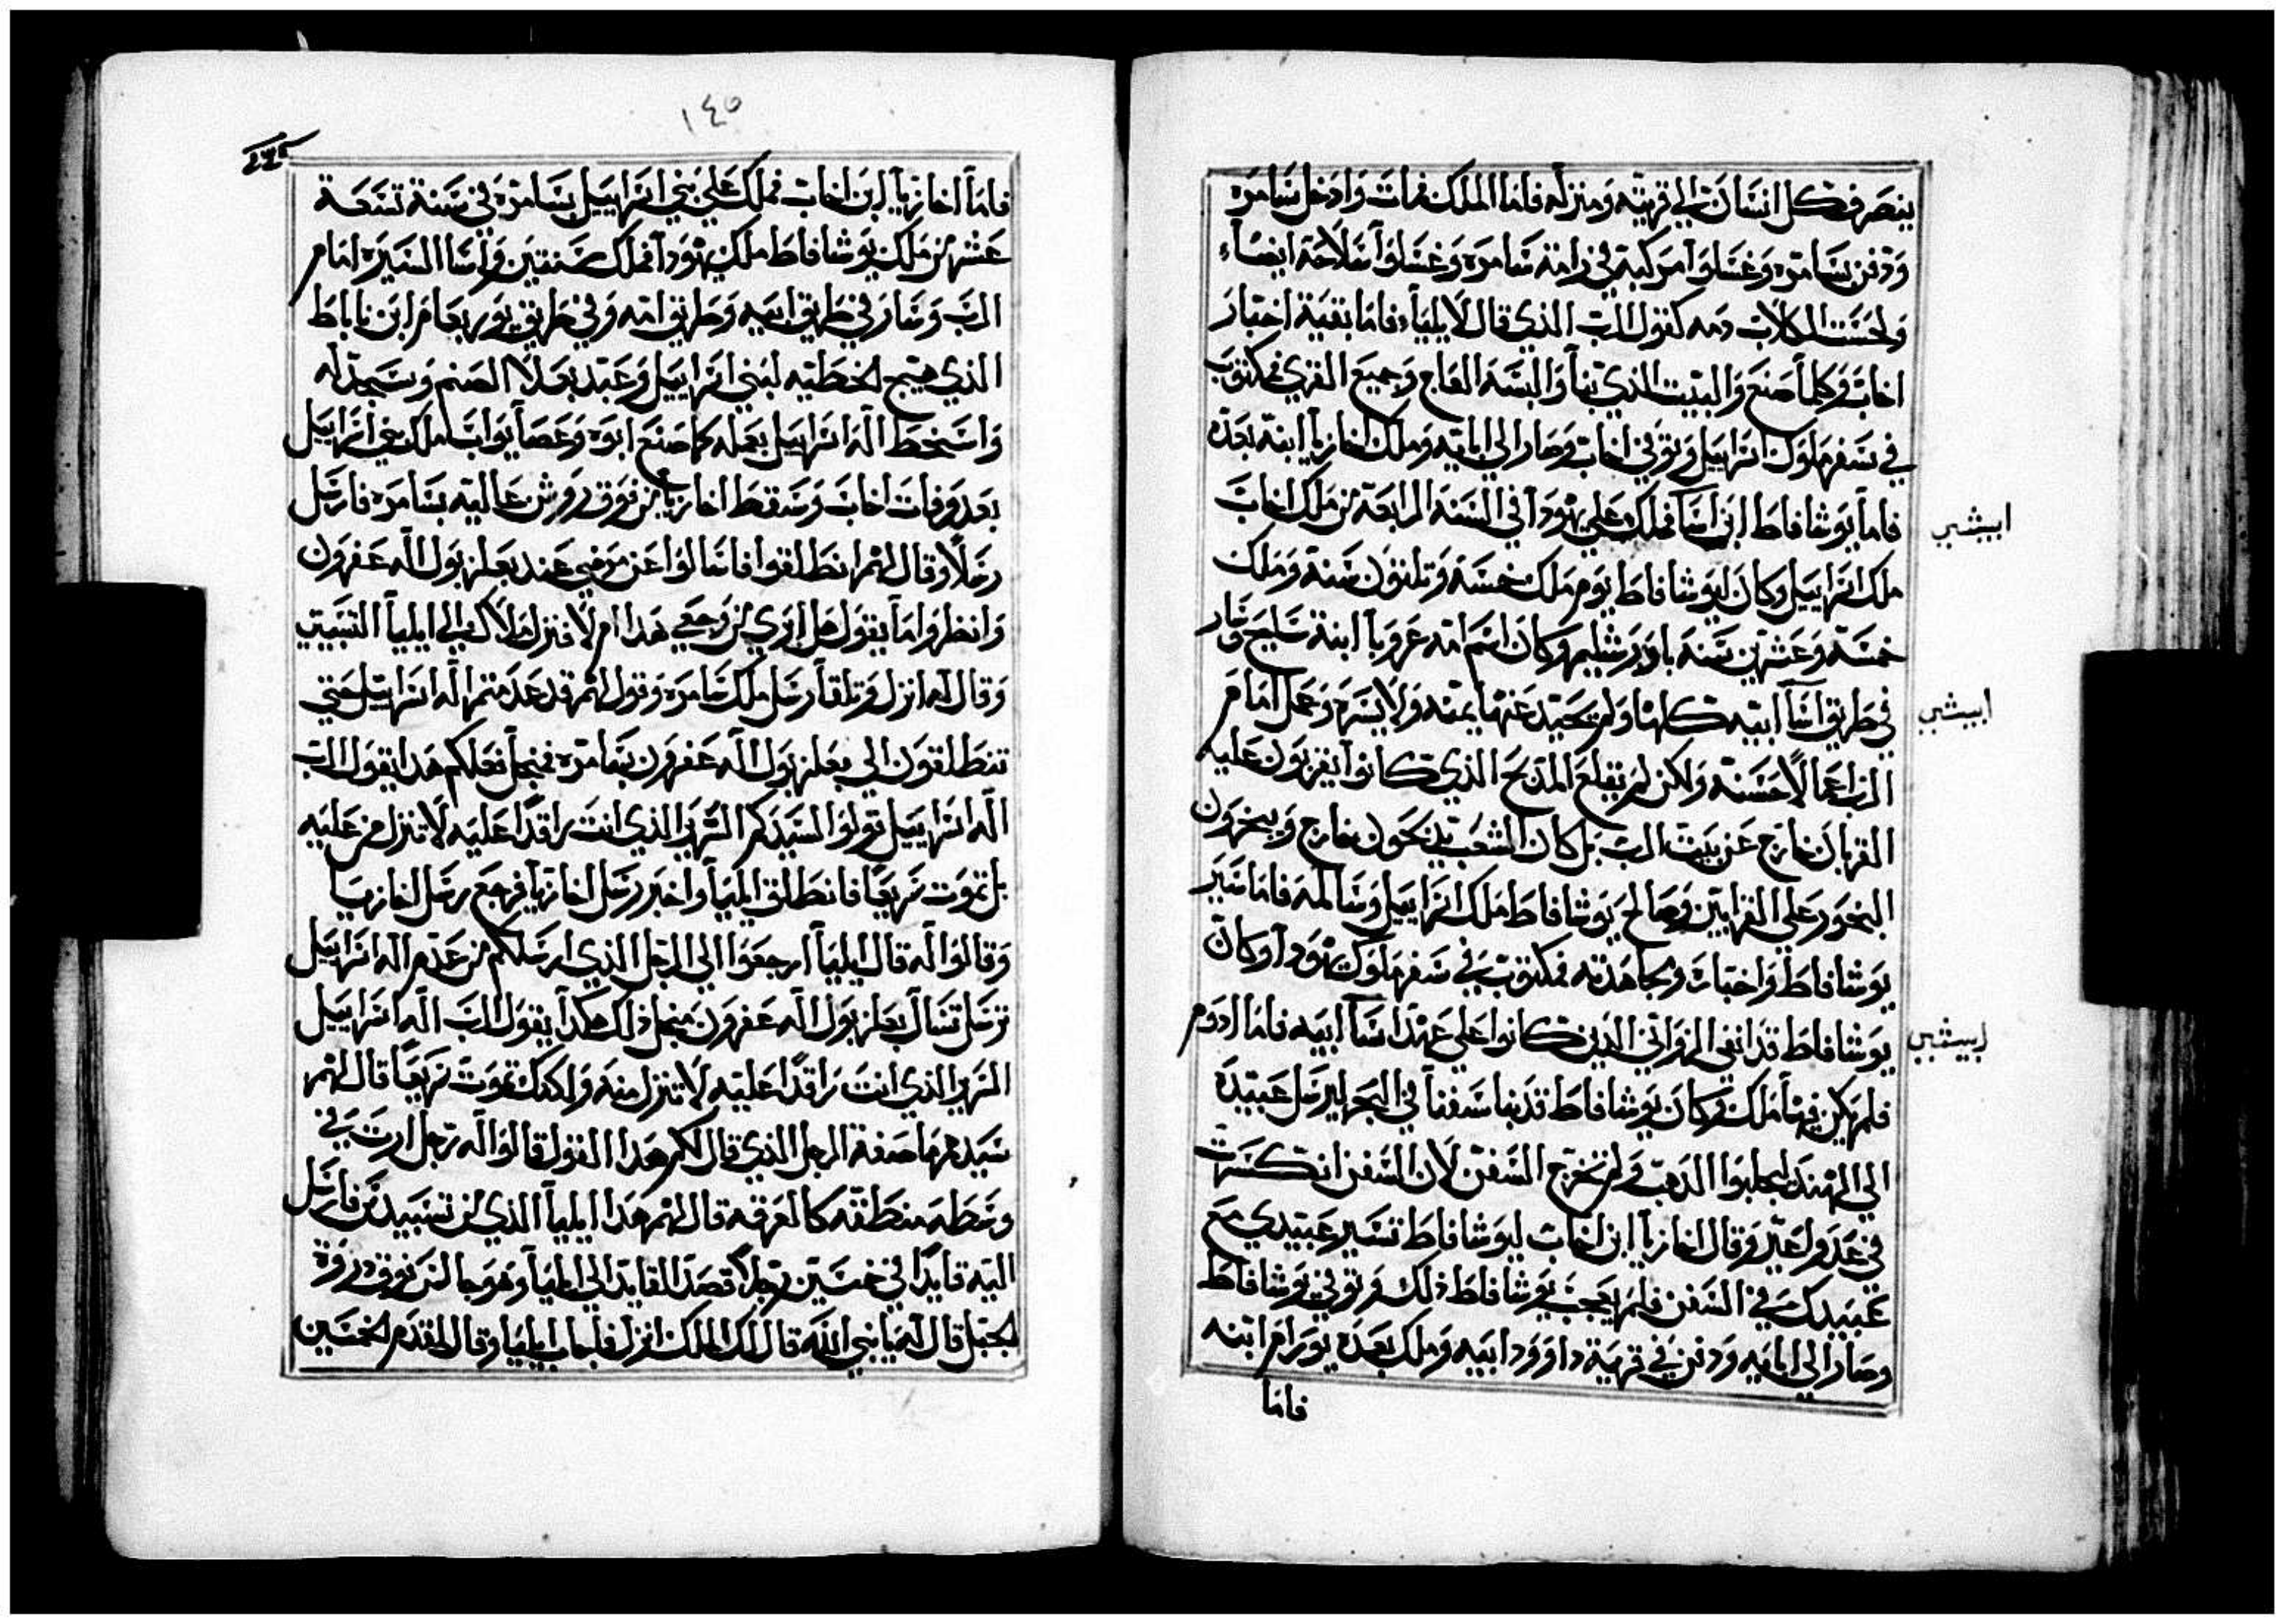 ينصرف كل انسان الي قريته ومنزله فاما الملك فمات وادخل سامره
ودفن بسامره وغسلوا مركبته في رامة سامره وغسلوا سلاحه ايضاء
ولحست الكلاب دمه كقول الرب الذي قال لايلياء فاما بقية اخبار
اخاب وكلما صنع والبيت الذي بنا والبسه العاج وجميع القري فمكتوب
في سفر ملوك اسراييل وتوفي اخاب وصار الي ابايه وملك اخازيا ابنه بعده
فاما يوشافاط ابن اسا فملك علي يهودا في السنه الرابعه من ملك اخاب
ابيشي
ملك اسراييل وكان ليوشافاط يوم ملك خمسه وتلتون سنه وملك
خمسه وعشرين سنه باورشليم وكان اسم امه عروبا ابنة سليح وسار
في طريق اسا ابيه كلها ولم يحيد عنها يمنه ولا يسره وعمل امام
ابيشي
الرب اعمالا حسنه ولكن لم يقلع المدبح الذي كانوا يقربون عليه
القربان خارج عن بيت الرب بل كان الشعب يدبحون خارج ويبخرون
البخور علي القرابين وصالح يوشافاط ملك اسراييل وسالمه فاما سير
يوشافاط واخباره ومجاهدته فمكتوب في سفر ملوك يهودا وكان
يوشافاط قد انفي الزواني الدين كانوا علي عهد اسا ابيه فاما ادوم
ابيشي
فلم يكن فيها ملك وكان يوشافاط قد بنا سفنا في البحر ليرسل عبيده
الي الهند ليجلبوا الدهب ولم تخرج السفن لان السفن انكسرت
في عدول عير وقال اخازيا ابن اخاب ليوشافاط تسير عبيدي مع
عبيدك في السفن فلم يعجب يوشافاط ذلك وتوفي يوشافاط
وصار الي ابايه ودفن في قرية داوود ابيه وملك بعده يورام ابنه
فاما
١٤٥
فاما اخازيا ابن اخاب فملك علي بني اسراييل بسامره في سنة تسعة
عشر من ملك يوشافاط ملك يهودا فملك سنتين واسا السيره امام
الرب وسار في طريق ابيه وطريق امه وفي طريق يوربعام ابن ناباط
الذي هيج الخطيه لبني اسراييل وعبد بعلا الصنم وسجد له
واسخط اله اسراييل بعمله كما صنع ابوه وعصا يواب ملك بني اسراييل
بعد وفات اخاب وسقط اخازيا من فوق روشن عاليه بسامره فارسل
رسلا وقال لهم انطلقوا فاسالوا عن مرضي عند بعلزبول اله عفرون
وانظروا ما يقول هل ابري من وجعي هدا ام لا فنزل ملاك الي ايليا التسبيتي
وقال له انزل وتلقا رسل ملك سامره وقول لهم قد عدمتم اله اسراييل حتي
تنطلقون الي بعلزبول اله عفرون بسامره فمن اجل فعلكم هدا يقول الرب
اله اسراييل قولوا لسيدكم السرير الذي انت راقدا عليه لا تنزل من عليه
بل تموت سريعا فانطلق ايليا واخبر رسل اخازيا فرجع رسل اخازيا
وقالوا له قال ايليا ارجعوا الي الرجل الذي ارسلكم من عدم اله اسراييل
ترسل تسال بعلزبول اله عفرون من اجل ذلك هكدا يقول الرب اله اسراييل
السرير الذي انت راقدا عليه لا تنزل منه ولكنك تموت سريعا قال لهم
سيدهم ما صفة الرجل الذي قال لكم هدا القول قالوا له رجل ارب في
وسطه منطقه كالعرقه قال لهم هدا ايليا الذي من تسبيد من فارسل
اليه قايدا في خمسين رجلا فصعد القايد الي ايليا وهو جالس فوق دروة
الجبل قال له يا نبي الله قال لك الملك انزل فاجاب ايليا وقال لمقدم الخمسين